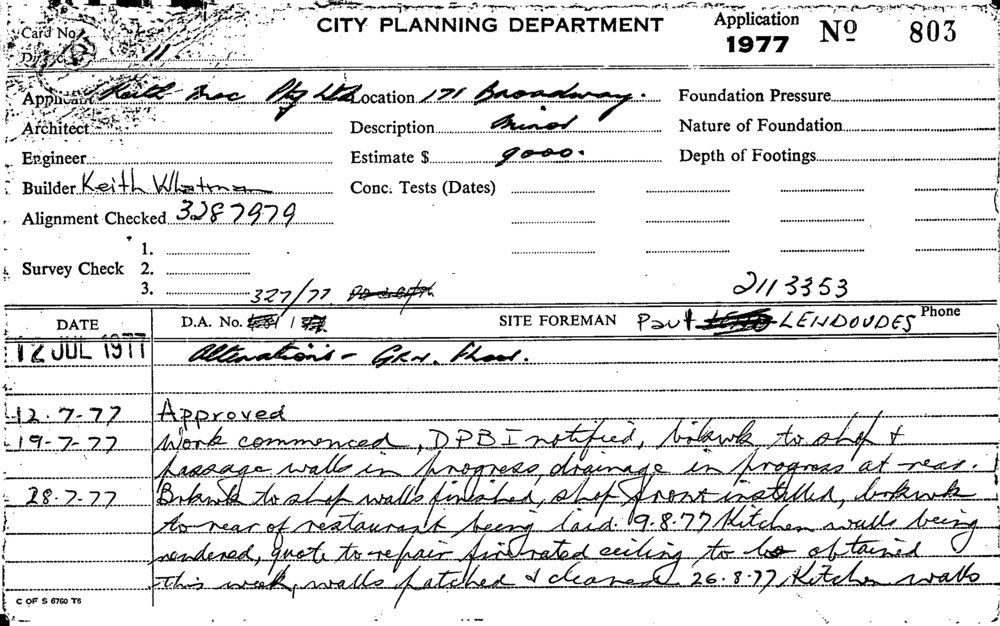 CITY PLANNING DEPARTMENT Application 1977 Nº 803
Card No.
11.
Applicant Keith Mac Pty Ltd Location 171 Broadway. Foundation Pressure
Architect Description Minor Nature of Foundation
Engineer Estimate $ 9000. Depth of Footings
Builder Keith Whatman Conc. Tests (Dates)
Alignment Checked 3287979
1.
Survey Check 2.
3.
327/77 2113353
DATE D.A. No. SITE FOREMAN Paul LENDOUDES Phone
12 JUL 1977 Alterations - Grn. Floor.
12.7-77 Approved
19-7-77 Work commenced, DPBI notified, brkwk to shop &
passage walls in progress, drainage in progress at rear.
28.7-77 Brkwk to shop walls finished, shop front installed, brkwk
to rear of restaurant being laid. 9.8.77 Kitchen walls being
rendered, quote to repair fire rated ceiling to be obtained
this week, walls patched & cleaned 26.8.77 Kitchen walls
C OF S 6760 T6